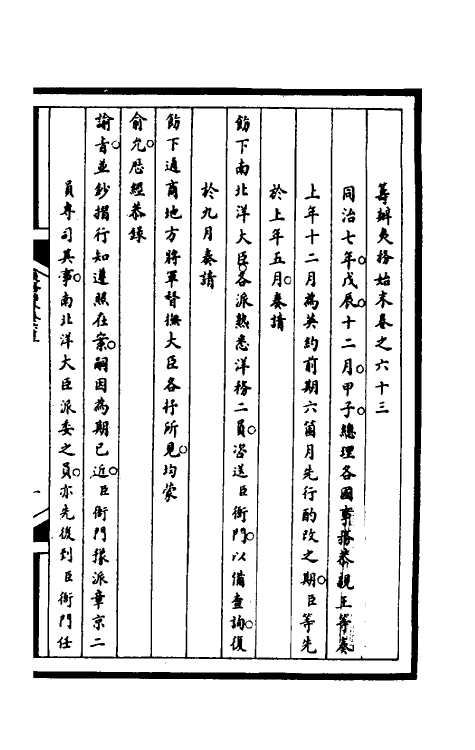 籌辦夷務始末卷之六十三
同治七年戊辰十二月甲子總理各國事務恭親王等奏
上年十二月為英約前期六箇月先行酌改之期臣等先
於上年五月奏請
飭下南北洋大臣各派熟悉洋務二員咨送臣衙門以備查詢復
於九月奏請
飭下通商地方將軍督撫大臣各抒所見均蒙
俞允歷經恭錄
諭旨並鈔摺行知遵照在案嗣因為期已近臣衙門揀派章京二
員專司其事南北洋大臣派委之員亦先後到臣衙門任
一